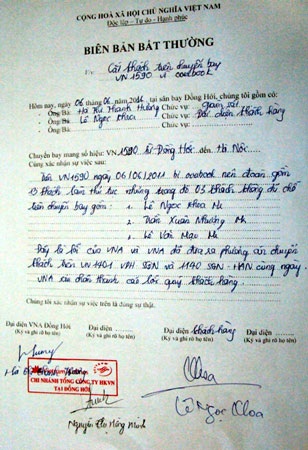 CỘNG HOÀ XÃ HỘI CHỦ NGHĨA VIỆT NAM
Độc lập - Tự do - Hạnh phúc
BIÊN BẢN BẤT THƯỜNG
V/v Cắt khách trên chuyến bay
VN 1590 vì overbook
Hôm nay, ngày 06 tháng 06 năm tại sân bay Đồng Hới, chúng tôi gồm có:
- Ông/Bà: Hà Thị Thanh Hương Chức vụ: Giám sát
- Ông/Bà: Lê Ngọc Khoa Chức vụ: Đại diện khách hàng
Chuyến bay mang số hiệu: VN 1590 từ Đồng Hới đến Hà Nội.
Cùng xác nhận sự việc sau:
VN1590 ngày 06/06/2011 bị overbook nên đoàn gồm
khách làm thủ tục nhưng trong đó 03 khách không đủ chỗ
trên chuyến bay gồm: Lê Ngọc Khoa Mr
Trần Xuân Mr
Lê Văn Mạo Mr
Đây là lỗi của VNA và VNA đã đưa ra phương án chuyển
khách trên VN 1401 VDH SGN và 1140 SGN - HAN cùng ngày.
VNA xin chân thành cáo lỗi quý khách hàng.
Chúng tôi xác nhận sự việc trên là đúng sự thật.
Đại diện VNA Đồng Hới Đại diện khách hàng Đại diện
(Ký và ghi rõ họ tên) (Ký và ghi rõ họ tên) (Ký và ghi rõ họ tên)
CHI NHÁNH TỔNG CÔNG TY HKVN
TẠI ĐỒNG HỚI
Khoa
Lê Ngọc Khoa
Nguyễn Thị Hồng Minh